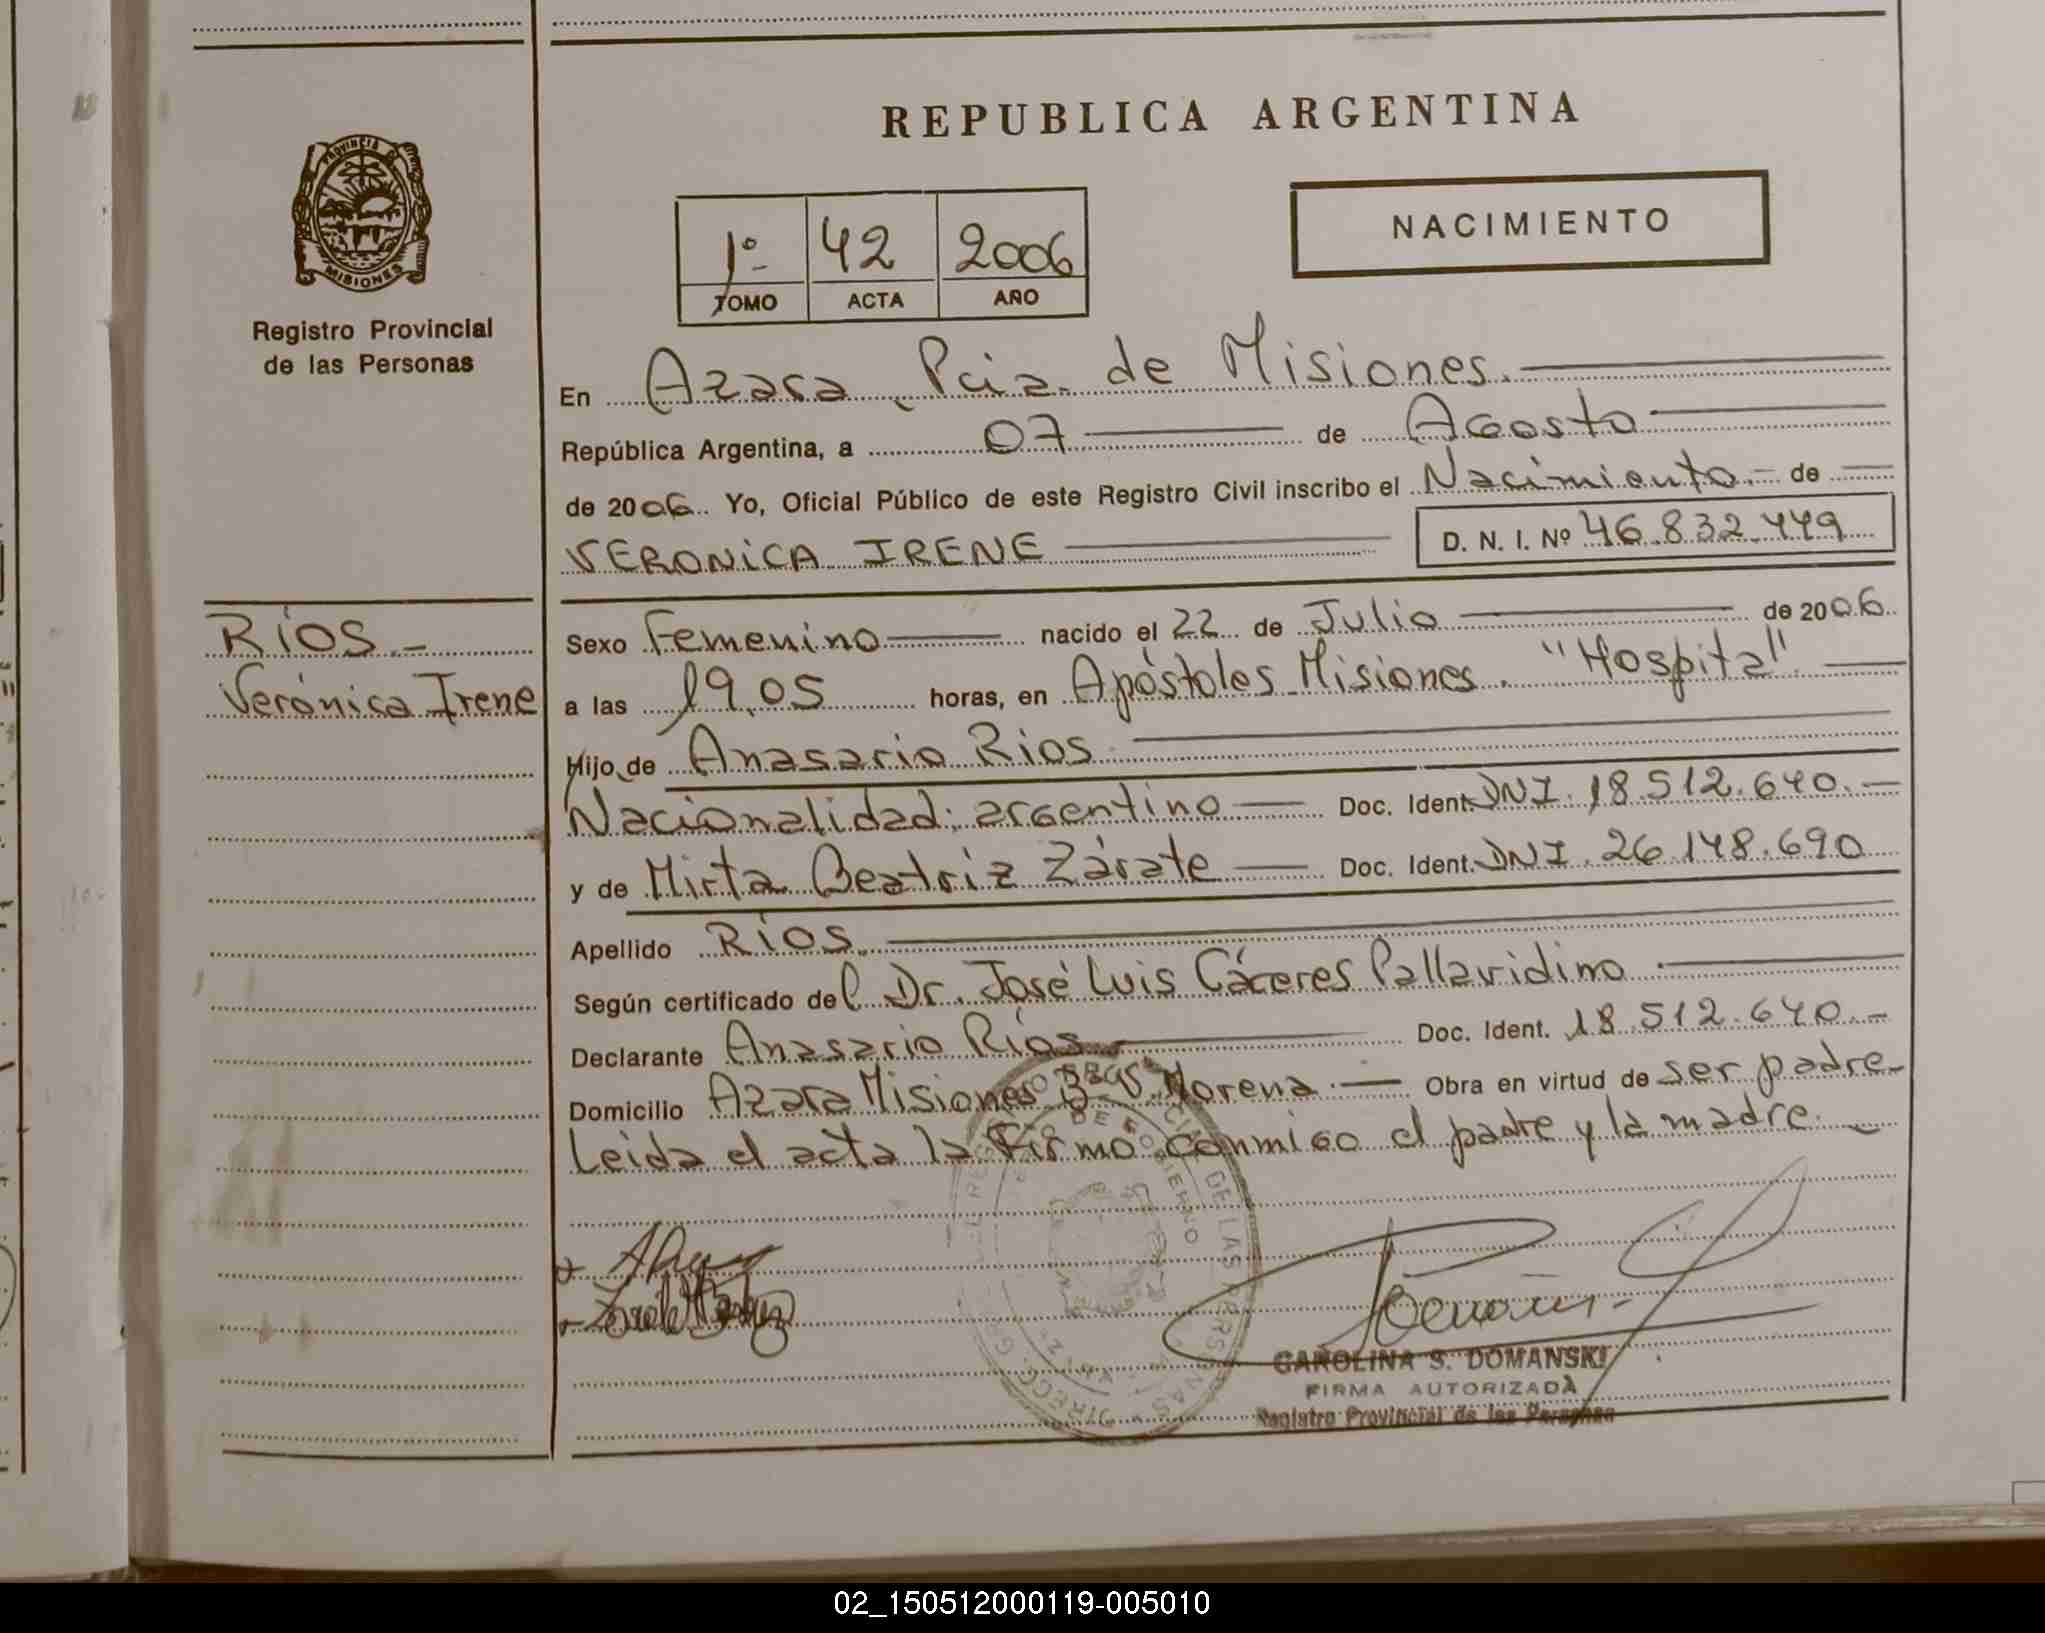 REPUBLICA ARGENTINA
NACIMIENTO
1º 42 2006
TOMO ACTA AÑO
PROVINCIA DE
MISIONES
Registro Provincial
de las Personas
En Azara, Pcia. de Misiones.
República Argentina, a 07 de Agosto
de 2006. Yo, Oficial Público de este Registro Civil inscribo el Nacimiento.- de
VERONICA IRENE D. N. I. Nº 46.832.449
RÍOS.-
Verónica Irene
Sexo Femenino nacido el 22 de Julio de 2006.
a las 19.05 horas, en Apóstoles Misiones. "Hospital"
Hijo de Anasario Rios.
Nacionalidad: argentino Doc. Ident. DNI. 18.512.640.-
y de Mirta Beatriz Zárate Doc. Ident. DNI. 26.148.690
Apellido RÍOS.
Según certificado del Dr. José Luis Cáceres Pallavidino
Declarante Anasario Ríos Doc. Ident. 18.512.640.-
Domicilio Azara Misiones Morena.- Obra en virtud de ser padre.
Leida el acta la firmo conmigo el padre y la madre.
CAROLINA S. DOMANSKI
FIRMA AUTORIZADA
Registro Provincial de las Personas
02_150512000119-005010